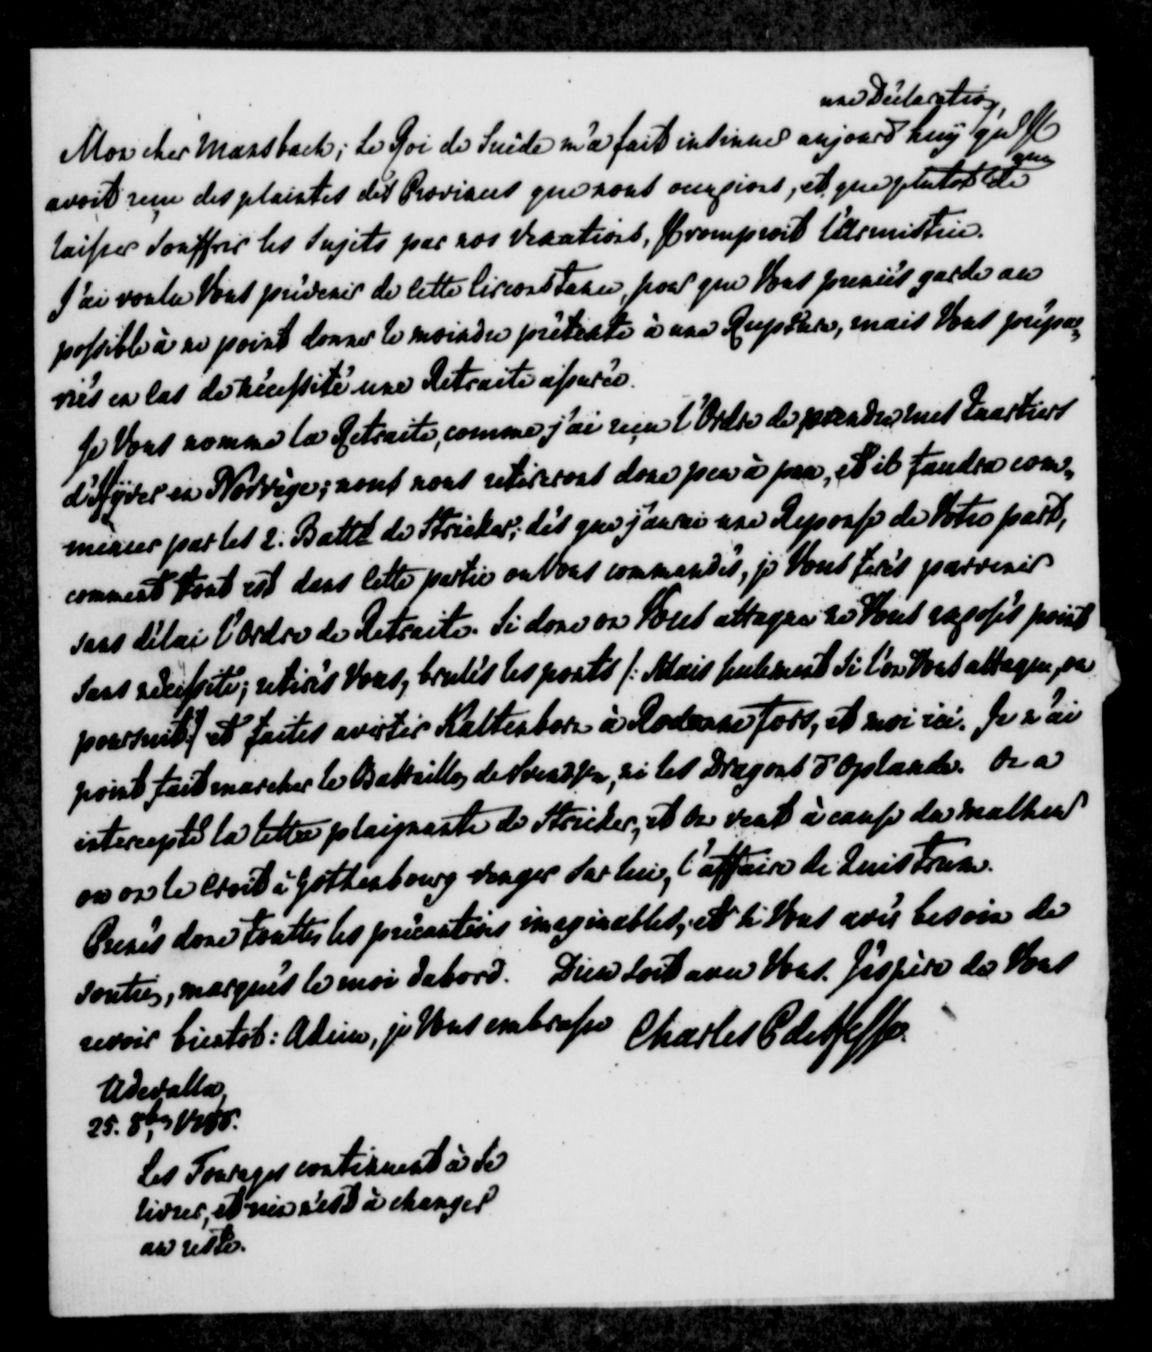 une Déclaration,
Mon cher Mansbach; Le Roi de Suède m'a fait intimer aujourd'huÿ qu'Il
avoit reçu des plaintes des Provinces que nous occupions, et que plutot que de
laisser souffrir les sujets par nos vexations, Il romproit l'Armistice.
J'ai voulu Vous prévenir de cette Circonstance, pour que Vous preniés garde au
possible à ne point donner le moindre prétexte à une Rupture, mais Vous prépa=
riés en Cas de nécessité une Retraite assurée.
Je Vous nomme la Retraite, comme j'ai reçu l'Ordre de prendre mes Quartiers
d'Hÿver en Norvège; nous nous retirerons donc peu à peu, et il faudra com=
mencer par les 2. Batts de Stricker; dès que j'aurai une Reponse de Votre part,
comment tout est dans cette partie ou Vous commandés, je Vous ferés parvenir
sans délai l'Ordre de Retraite. Si donc on Vous attaque ne Vous exposés point
sans nécessité; retirés Vous, brulés les ponts /: Mais seulement si l'on Vous attaque, ou
poursuit :/ et faites avertir Kaltenborn à Rodanne fors, et moi ici. Je n'ai
point fait marcher le Bataillon de , ni les Dragons d'Oplande. On a
intercepté la lettre plaignante de Stricker, et On veut à cause du malheur
ou on le Croit à Gothenbourg venger sur lui, l'affaire de Quistrum.
Prenés donc touttes les précautions imaginables, et si Vous avés besoin de
soutien, marqués le moi dabord. Dieu soit avec Vous. J'espère de Vous
revoir bientot: Adieu, je Vous embrasse Charles P de Hesse.
Udevalla,
25. 8br 1788.
Les Fourages continuent à se
livrer, et rien n'est à changer
au reste.